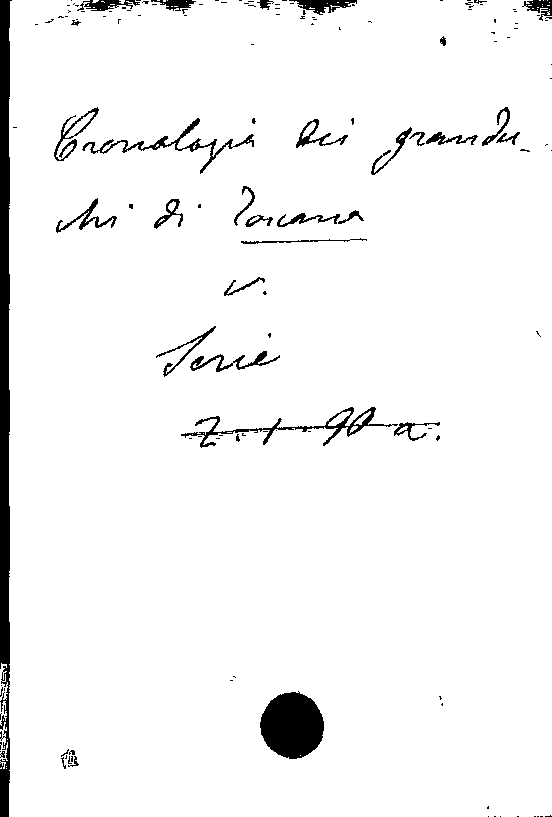 Cronologia dei grandu-
chi di Toscana
v.
Serie
Z.1.90 a.